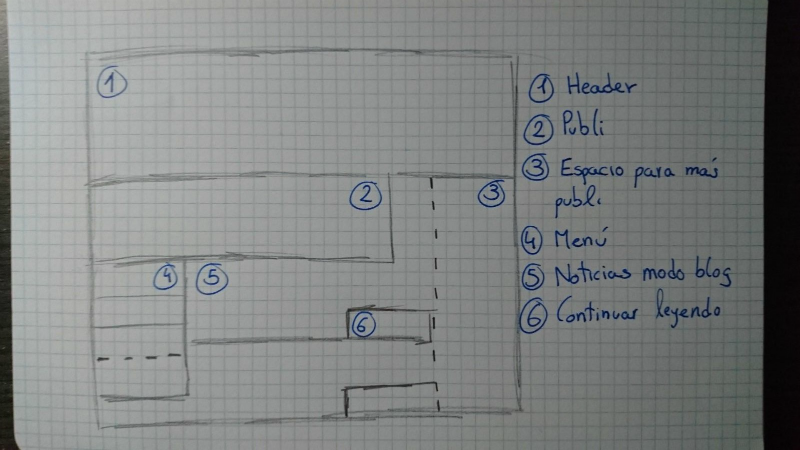 1
2
3
4
5
6
1 Header
2 Publi
3 Espacio para más
publi
4 Menú
5 Noticias modo blog
6 Continuar leyendo